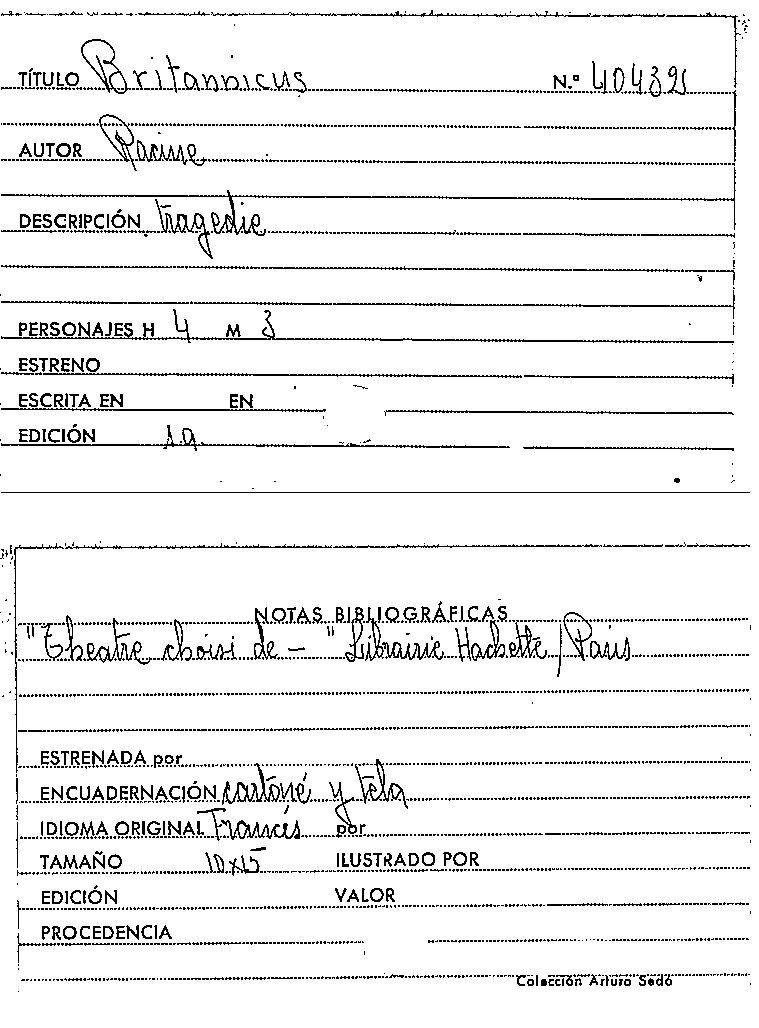 TÍTULO Britannicus N.º 404321
AUTOR Racine
DESCRIPCIÓN tragedie
PERSONAJES H 4 M 3
ESTRENO
ESCRITA EN EN
EDICIÓN 1a.
NOTAS BIBLIOGRÁFICAS
"Theatre choisi de - " Librairie Hachette / Paris
ESTRENADA por
ENCUADERNACIÓN cartoné y tela
IDIOMA ORIGINAL Francés por
TAMAÑO 10x15 ILUSTRADO POR
EDICIÓN VALOR
PROCEDENCIA
Colección Arturo Sedó